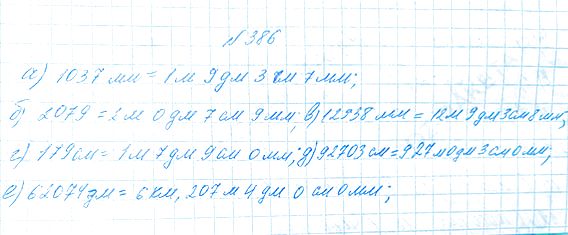 №386
а) 1037 мм = 1 м 9 дм 3 см 7 мм;
б) 2079 = 2 м 0 дм 7 см 9 мм; в) 12938 мм = 12 м 9 дм 3 см 8 мм;
г) 179 см = 1 м 7 дм 9 см 0 мм; д) 92703 см = 927 м 0 дм 3 см 0 мм;
е) 62074 дм = 6 км, 207 м 4 дм 0 см 0 мм;